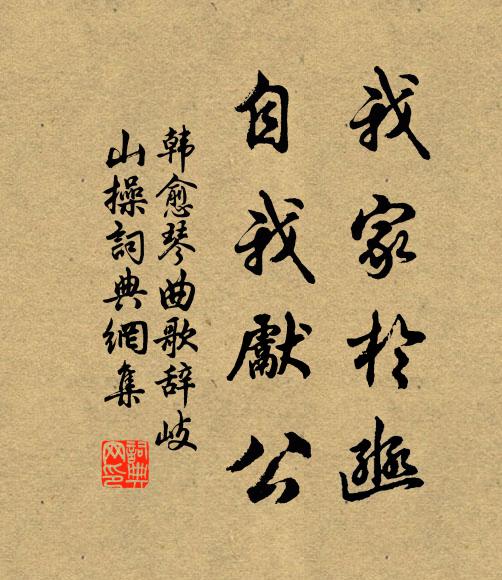 我家於豳
自我獻公
韓愈琴曲歌辭岐
山操詞典網集
詞典
网印